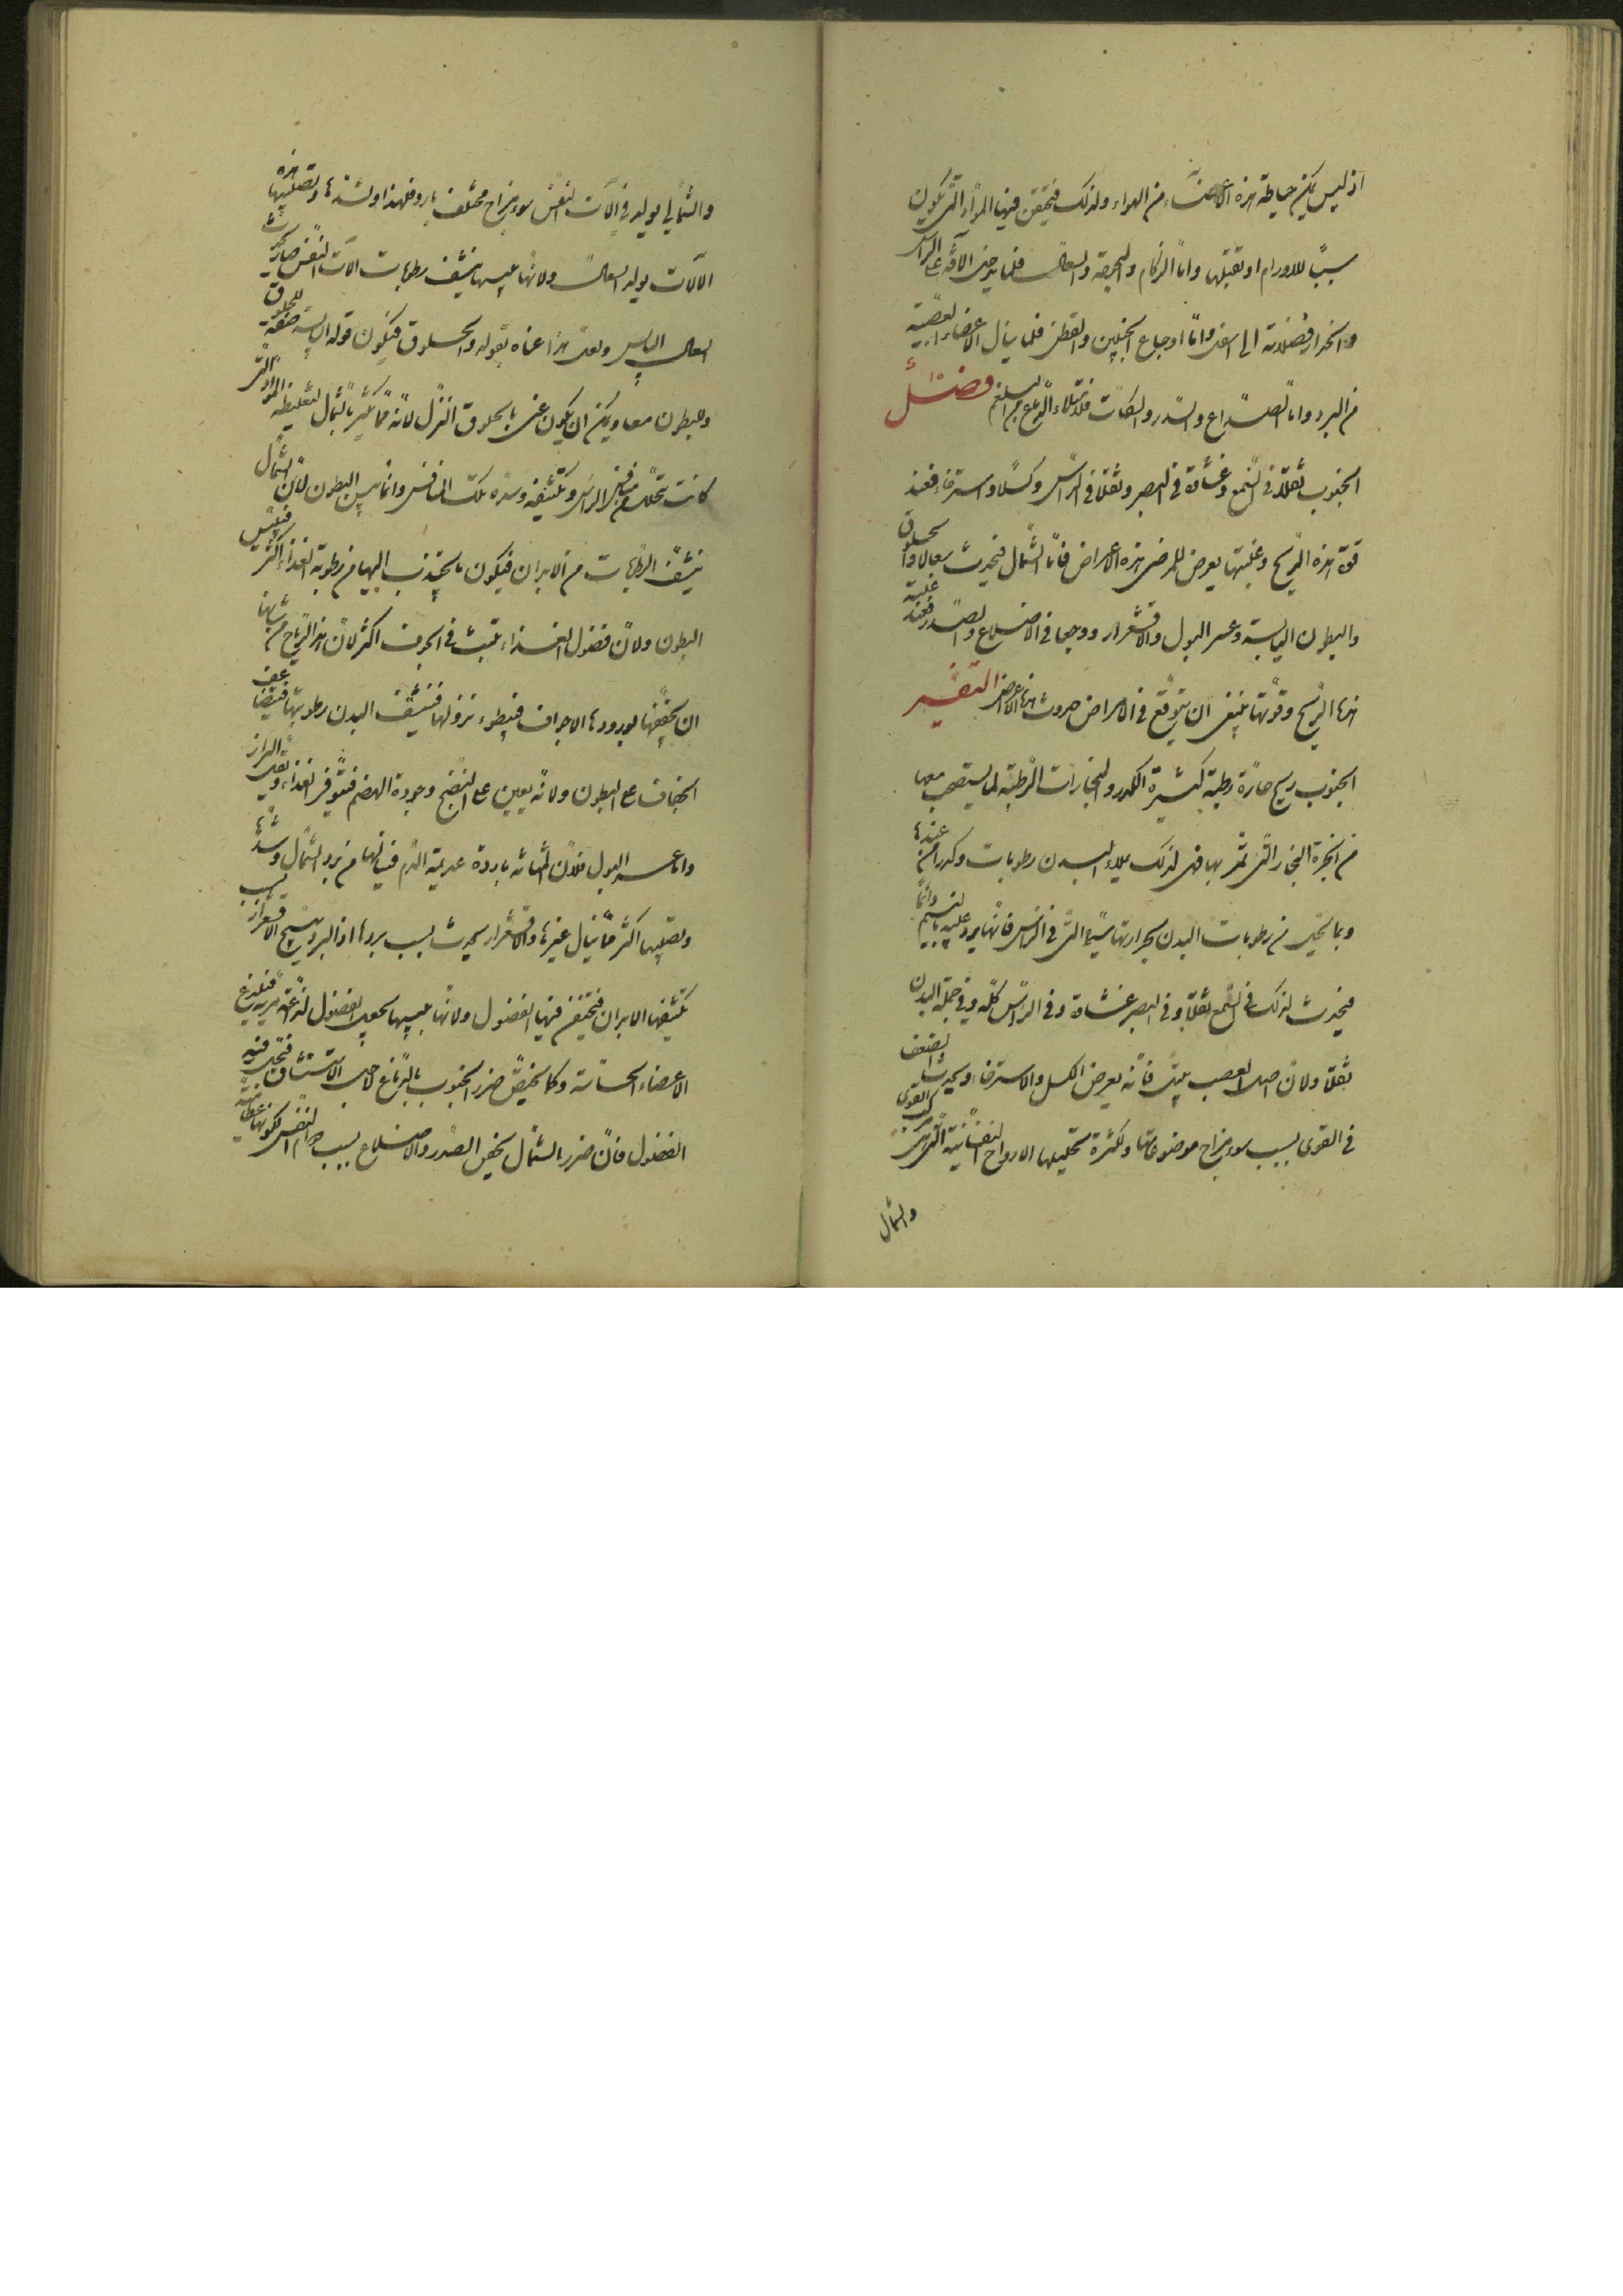 اذ ليس يمكن حياطة هذه الاعضاء من الهواء ولذلك فيحتقن فيها المواد التى تكون
سببًا للاورام او تقبلها واما الزكام والبحوحة والسعال فلما يدخل الآفة على الراس
وانحدار فضلاته الى اسفل واما اوجاع الجنبين والقطن فلما ينال الاعضاء العصبية
من البرد واما الصداع والسدر والسكات فلامتلاء الدماغ من البلغم فصل
الجنوب ثقلا فى السمع وغشاوة فى البصر وثقلا فى الراس وكسلا واسترخاء فعند
قوة هذه الريح وغلبتها يعرض للمرضى هذه الاعراض فاما الشمال فيحدث سعالا والحلوق
والبطون اليابسة وعسر البول والاقشعرار ووجعا فى الاضلاع والصدر فعند غلبة
هذه الريح وقوتها ينبغى ان يتوقع فى الامراض حدوث هذه الاعراض التفسير
الجنوب ريح حارة رطبة كثيرة الكدر والبخارات الرطبة لما يستصحب معها
من ابخرة البحار التى تمر بها فهى لذلك يملاء البدن رطوبات وكدر من عندها
وبما تحلل من رطوبات البدن بحرارتها سيما التى فى الراس فانها يرد عليه بالنسيم دائما
فيحدث لذلك فى السمع ثقلا وفى البصر غشاوة وفى الراس كله وفى جملة البدن
ثقلا ولان اصل العصب يبتل فانه يعرض الكسل والاسترخاء ويحدث الضعف
فى القوى بسبب سوء مزاج موضوعاتها ولكثرة تحليلها الارواح النفسانية التى هى مركب القوى
والشمال
والشمال يولد فى آلات النفس سوء مزاج مختلف بارد فلهذا ولشدتها وتصليبها هذه
الآلات يولد السعال ولانها بيبسها ينشف رطوبات آلات النفس صار يحدث
السعال اليابس ولعل هذا عناه بقوله والحلوق فيكون قوله اليابسة صفة للحلوق
وللبطون معا ويمكن ان يكون عنى بالحلوق النزل لانه مما يكثر بالشمال لتغليظه المواد التى
كانت تتحلل من الراس وتكثيفه وسده تلك المنافس وانما يبس البطون لان الشمال
ينشف الرطوبات من الابدان فيكون ما ينجذب اليها من رطوبة الغذاء اكثر فييبس
البطون ولان فضول الغذاء يلبث فى الجوف اكثر لان هذه الرياح من شانها
ان يجففها بورودها الاجواف فيبطوء نزولها فينشف البدن رطوبتها فيتضاعف
الجفاف على البطون ولانه يعين على النضج وجودة الهضم فيتوفر الغذاء ويقل البراز
واما عسر البول فلان المثانة باردة عديمة الدم فينالها من برد الشمال وشدها
وتصليبها اكثر مما ينال غيرها والاقشعرار يحدث بسبب بردها اذ البرد يهيج الاقشعرار بسبب
تكثيفها الابدان فيحتقن فيها الفضول ولانها بيبسها يجعل الفضول لذاعة مريرية فيلذع
الاعضاء الحساسة وكما يخص ضرر الجنوب بالدماغ لاجل الاستنشاق فيحلل فيه
الفضول فان ضرر الشمال يخص الصدر والاضلاع بسبب دوام النفس لكونها عظامية